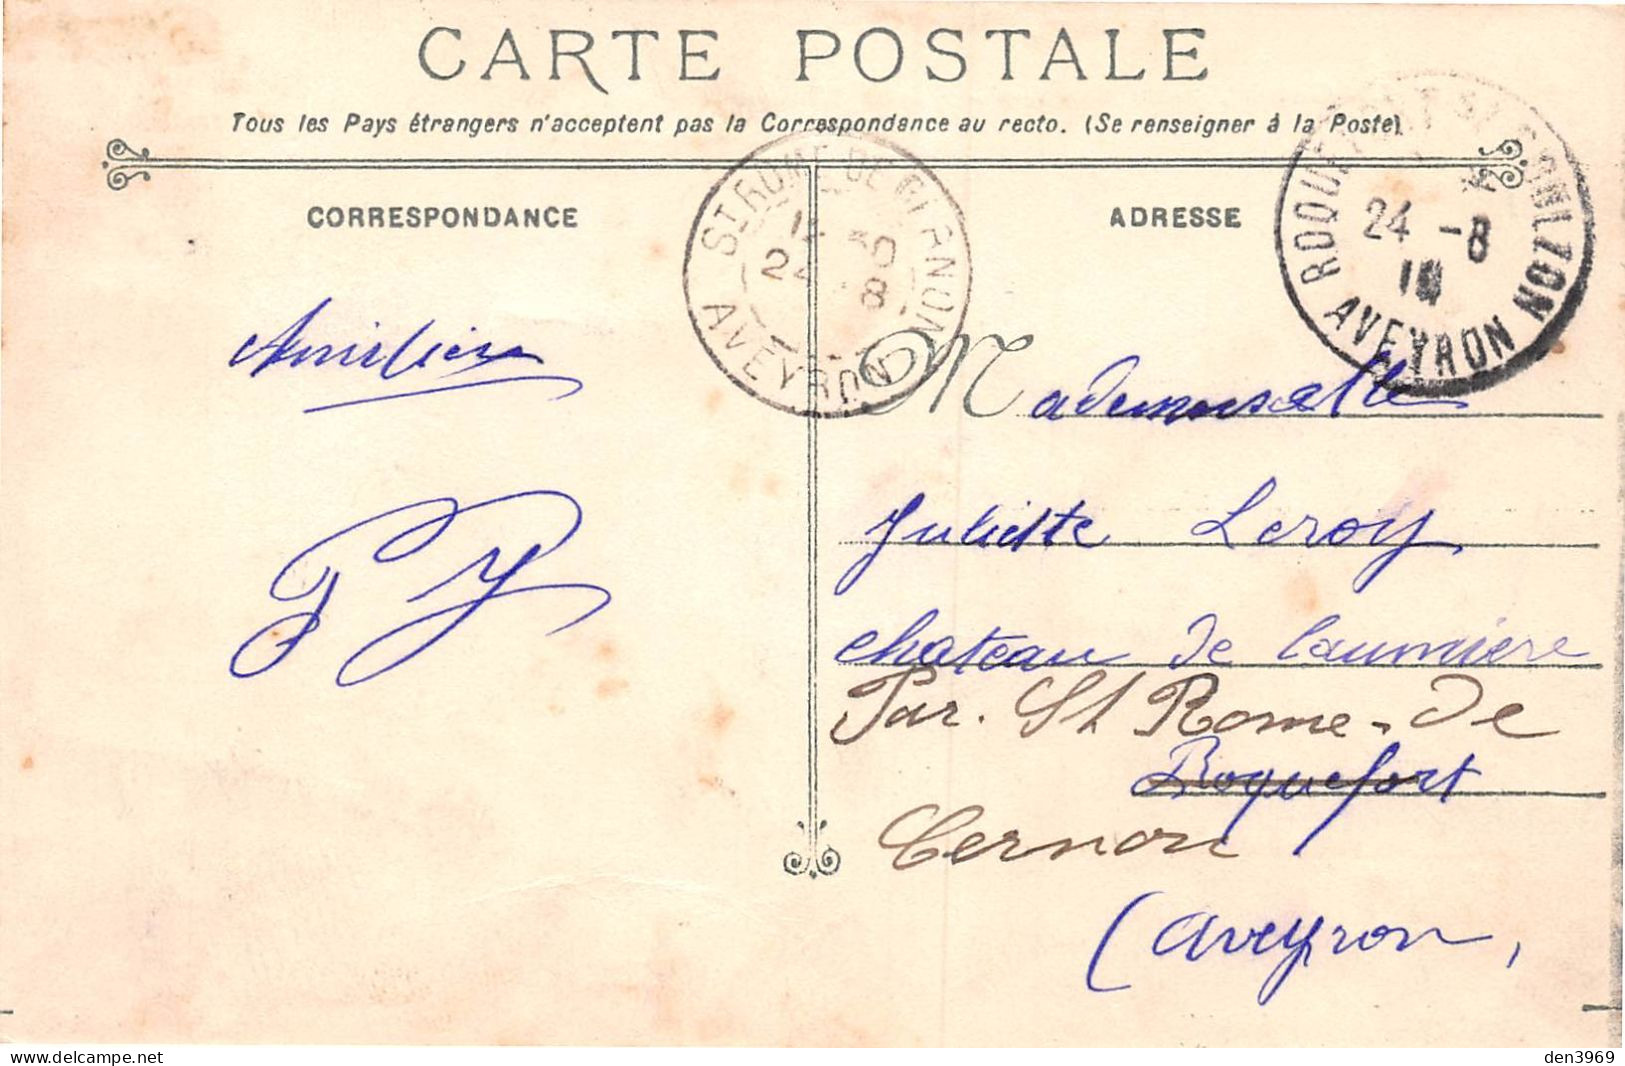 CARTE POSTALE
Tous les Pays étrangers n'acceptent pas la Correspondance au recto. (Se renseigner à la Poste)
CORRESPONDANCE
ADRESSE
ST ROME DE CERNON
24 8
AVEYRON
ROQUEFORT
24 -8
AVEYRON
Mademoiselle
Juliette Leroy
chateau de Laumière
Par. St Rome-de
Roquefort
Cernon
(Aveyron,
www.delcampe.net
den3969